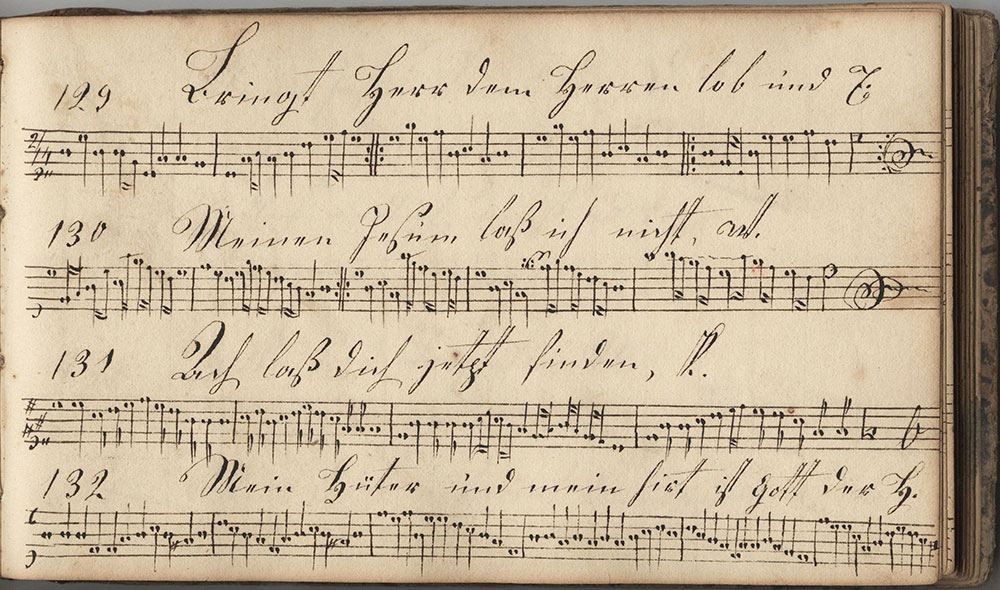 129 Bringt Herr dem Herren lob und
130 Meinen Jesum laß ich nicht,
131 Ach laß dich jetzt finden,
132 Mein Hüter und mein hirt ist Gott der H.